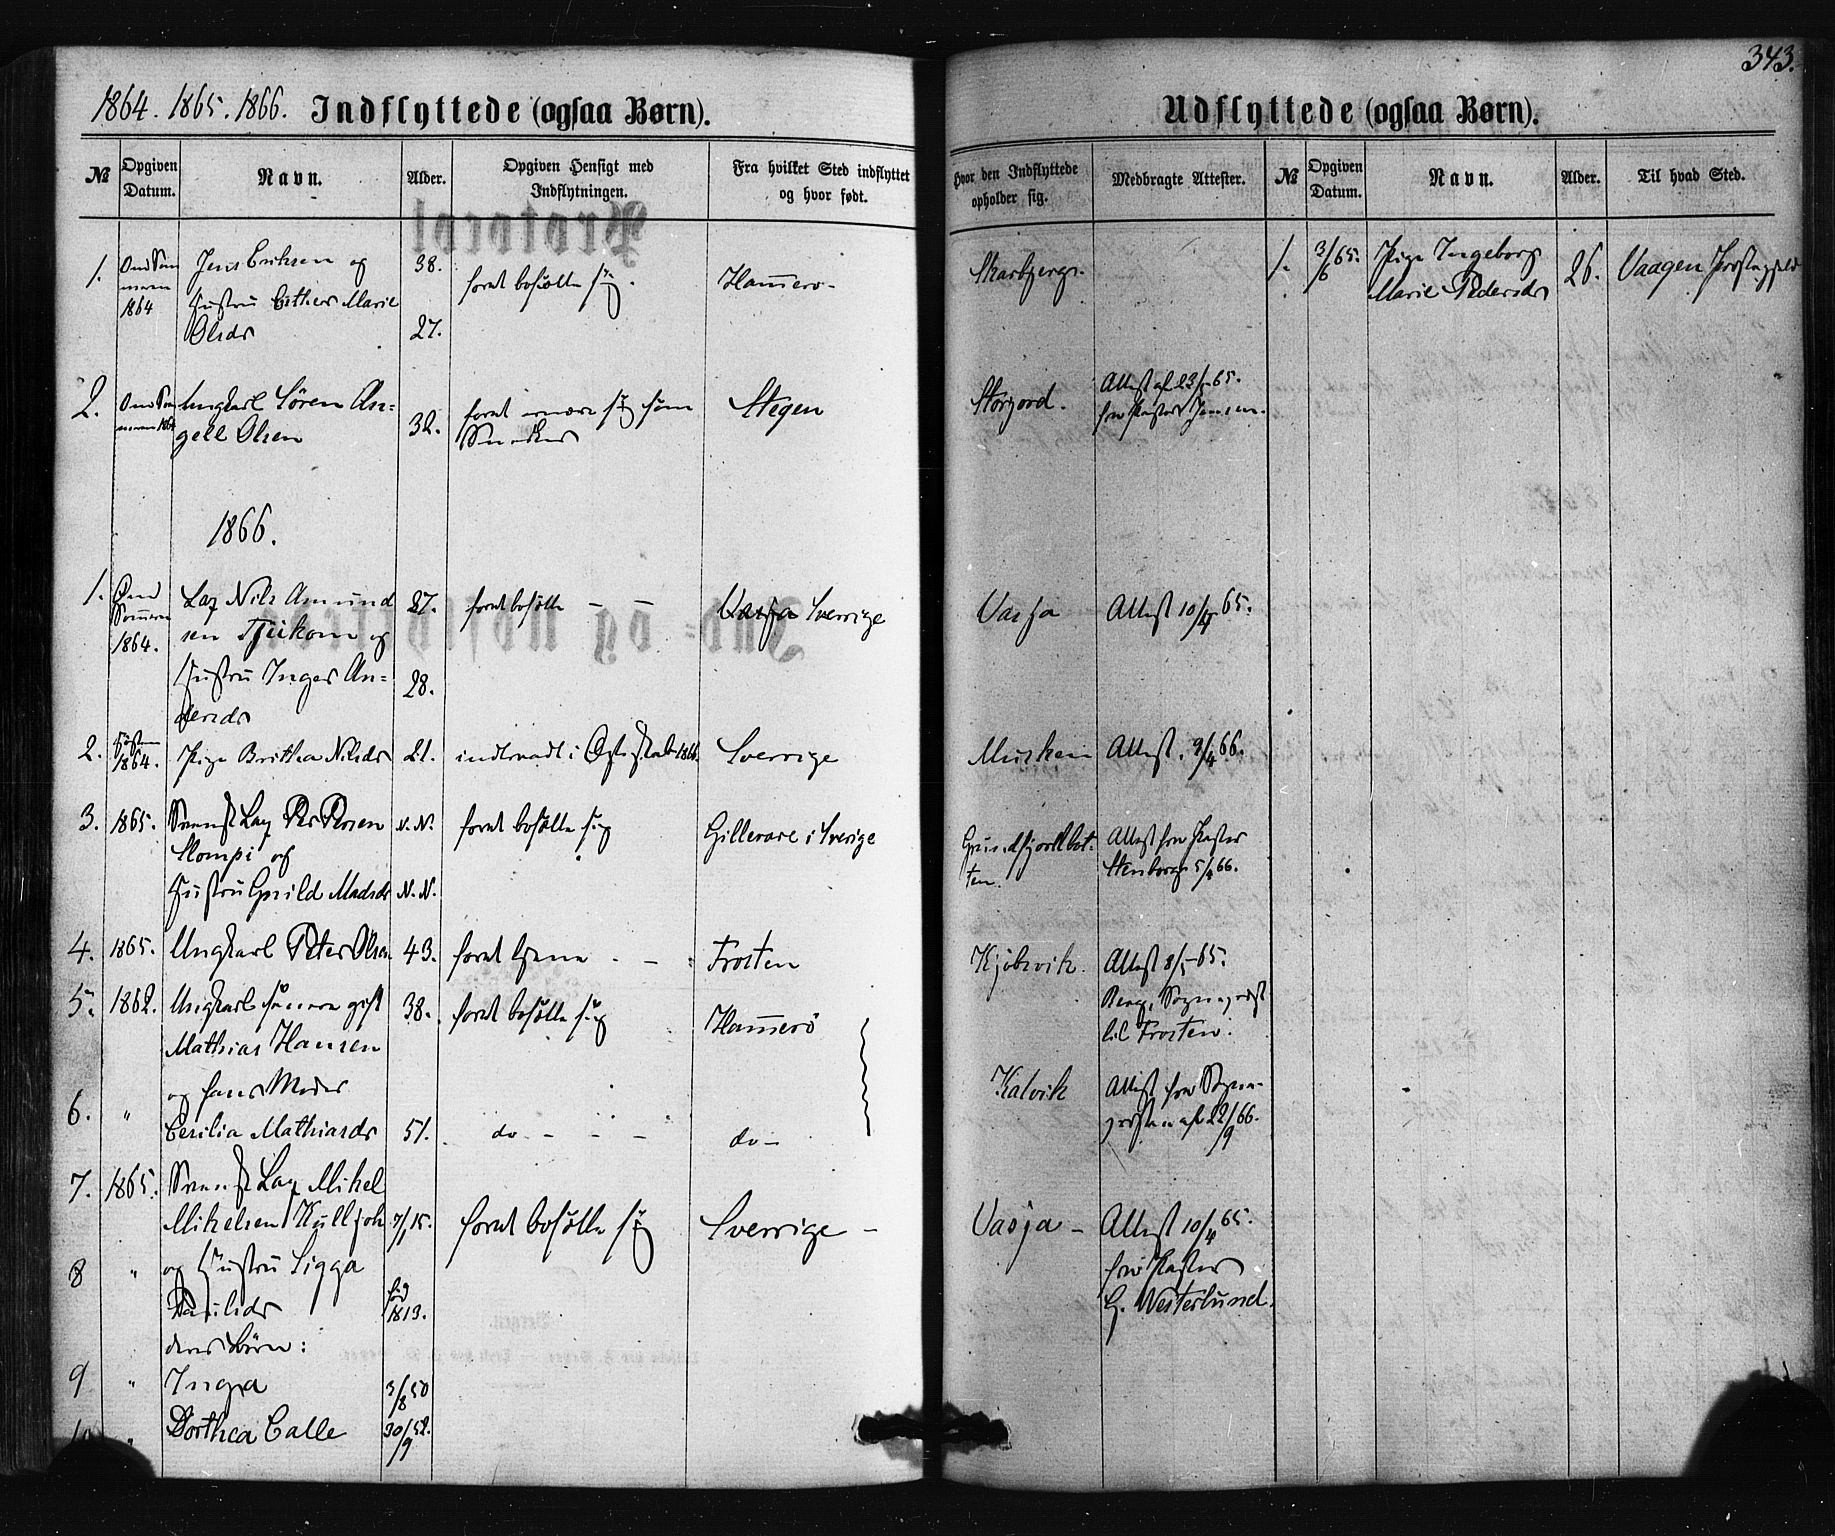 343.
1864. 1865. 1866. Indflyttede (ogsaa Børn).
Udflyttede (ogsaa Børn).
№
Opgiven Datum.
Navn.
Alder.
Opgiven Hensigt med Indflytningen.
Fra hvilket Sted indflyttet og hvor født.
Hvor den Indflyttede opholder sig.
Medbragte Attester.
№
Opgiven Datum.
Navn.
Alder.
Til hvad Sted.
1. 1864 Jens Eriksen og 38. forat bosætte sig. Hamerø-
Hustru Esther Marie
Olsdr 27.
1. 3/6 65. Pige Ingeborg 26. Vaagen
Marie Pedersdr
2. 1864 Ungkarl Sören An= 32. forat ernære sig som Stegen Storjord. Attest af 23/5 65.
gell Olsen Snedker fra Pastor Jensen.
1866.
1. Lap Nils Amund 27. forat bosætte - - Sverrige Vasja Attest 10/4 65.
Sommeren sen og
1864. Hustru Inger An= 28.
dersdr
2. 1864. Pige Britha Nilsdr 21. indtraadt i 1866. Sverrige Musken Attest. 9/4 66.
3. 1865. Svensk Lap Per Persen N.N. forat bosætte sig Gillevare i Sverige Attest fra Pastor
Slompi og ten. Stenborg 5/4 66.
Hustru Gunild Madsdr N.N.
4. 1865. Ungkarl Peter Olsen 43. forat tjene - - Trosten Kjøbsvik. Attest 8/5 65.
5. 1862. Ungkarl senere gift 38. forat bosætte sig Hamerö
Mathias Hansen til Trosten.
6. " og hans Moder Kalvik Attest fra Sogne-
Cesilia Mathiasdr 51. do - - - do - præsten af 22/9 66.
7. 1865. Svensk Lap Mikel
Mikelsen 7/1 15. forat bosætte sig Sverrige - Vasja - Attest 10/4 65.
8 " og Hustru Sigga fra Pastor
Paulsdr fød 1813. G. Westerlund.
deres Börn:
9 " Inga 3/8 50
" Dorthea Calle 30/9 52.